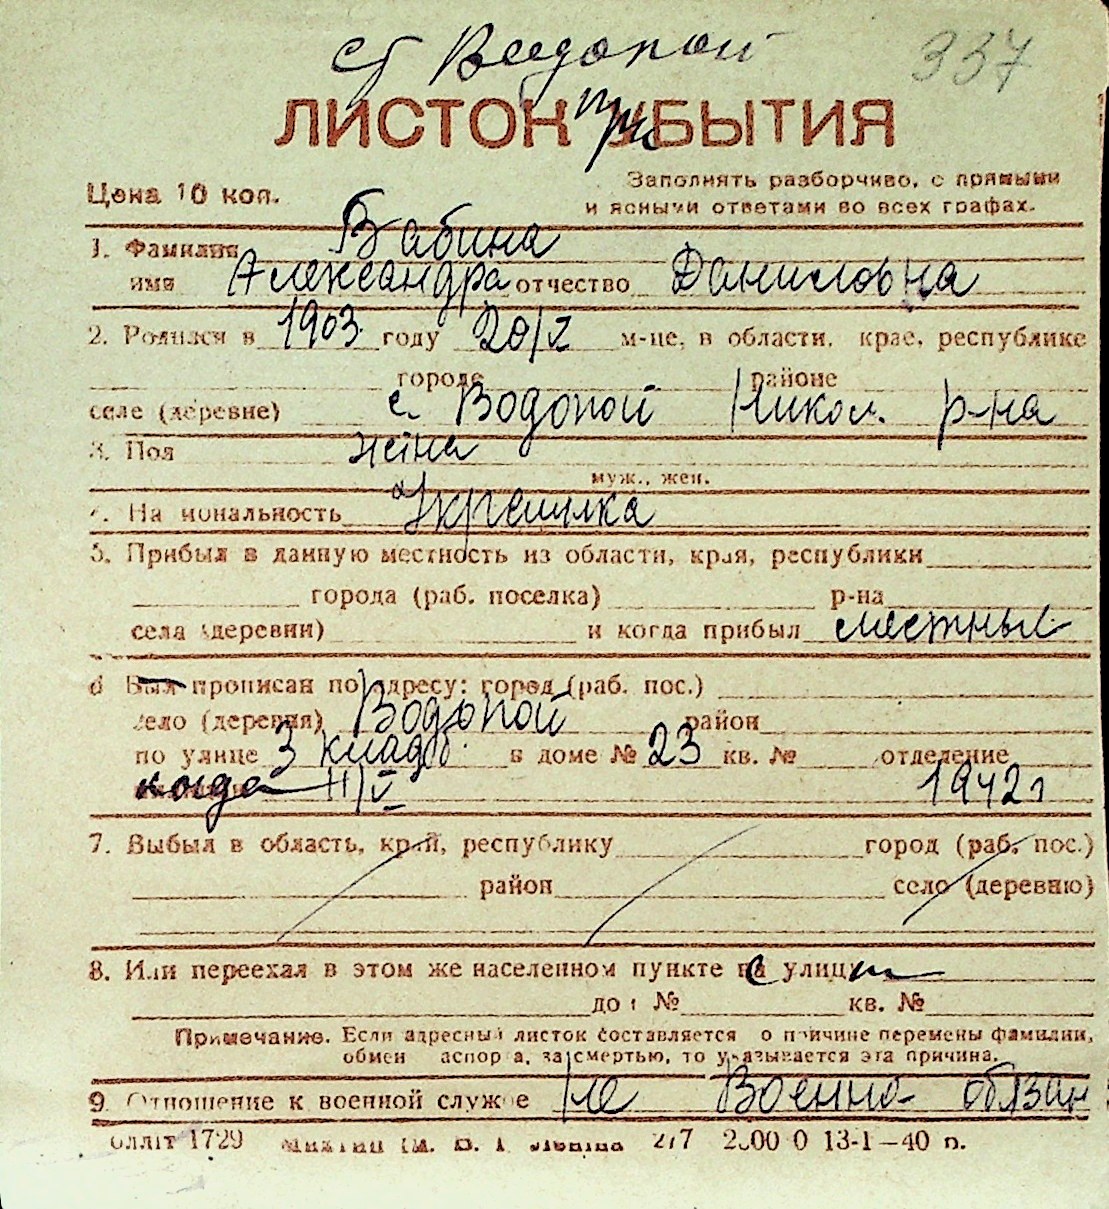 с Водопой
337
ЛИСТОК при УБЫТИЯ
Цена 10 коп.
Заполнять разборчиво, с прямыми
и ясными ответами во всех графах.
1. Фамилия Бабина
имя Александра отчество Даниловна
2. Родился в 1903 году 20/V м-це, в области, крае, республике
городе районе
селе (деревне) с. Водопой Никол. р-на
3. Пол жена
муж., жен.
4. Национальность Украинка
5. Прибыл в данную местность из области, края, республики
города (раб. поселка) р-на
села (деревни) и когда прибыл местный
6 Был прописан по адресу: город (раб. пос.)
село (деревня) Водопой район
по улице 3 кладб. в доме № 23 кв. № отделение
когда 11/V 1942 г
7. Выбыл в область, край, республику город (раб. пос.)
район село (деревню)
8. Или переехал в этом же населенном пункте с улицы
дом № кв. №
Примечание. Если адресный листок составляется по причине перемены фамилии,
обмена паспорта, за смертью, то указывается эта причина.
9. Отношение к военной службе Не Военно-обязан
1729 2.00 0 13-1-40 п.